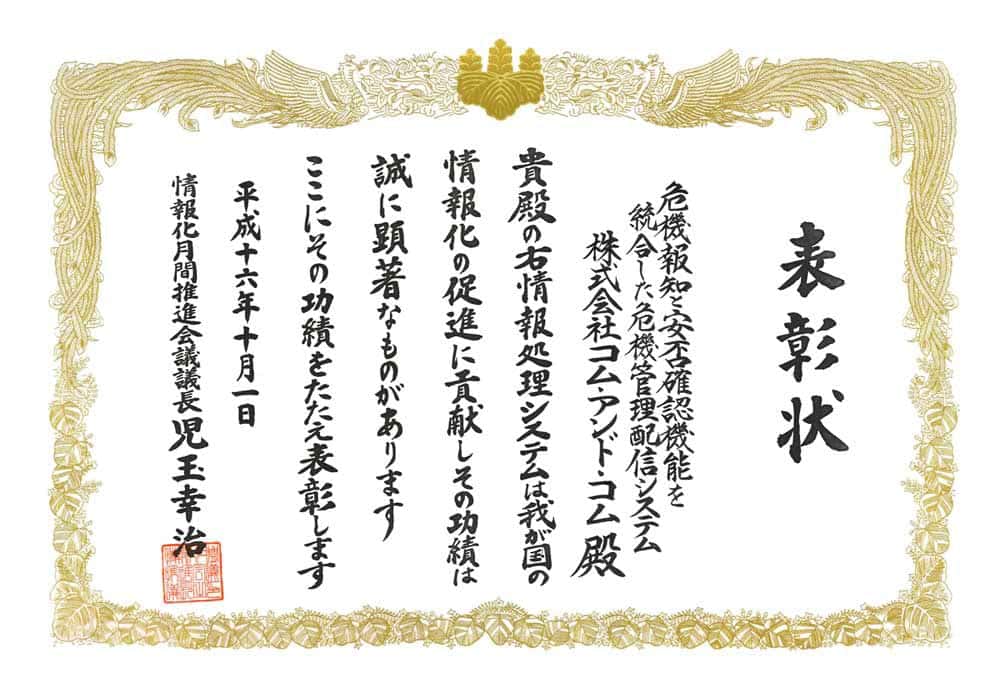 表彰状
危機報知と安否確認機能を
統合した危機管理配信システム
株式会社コム・アンド・コム殿
貴殿の右情報処理システムは我が国の
情報化の促進に貢献しその功績は
誠に顕著なものがあります
ここにその功績をたたえ表彰します
平成十六年十月一日
情報化月間推進会議議長 児玉幸治